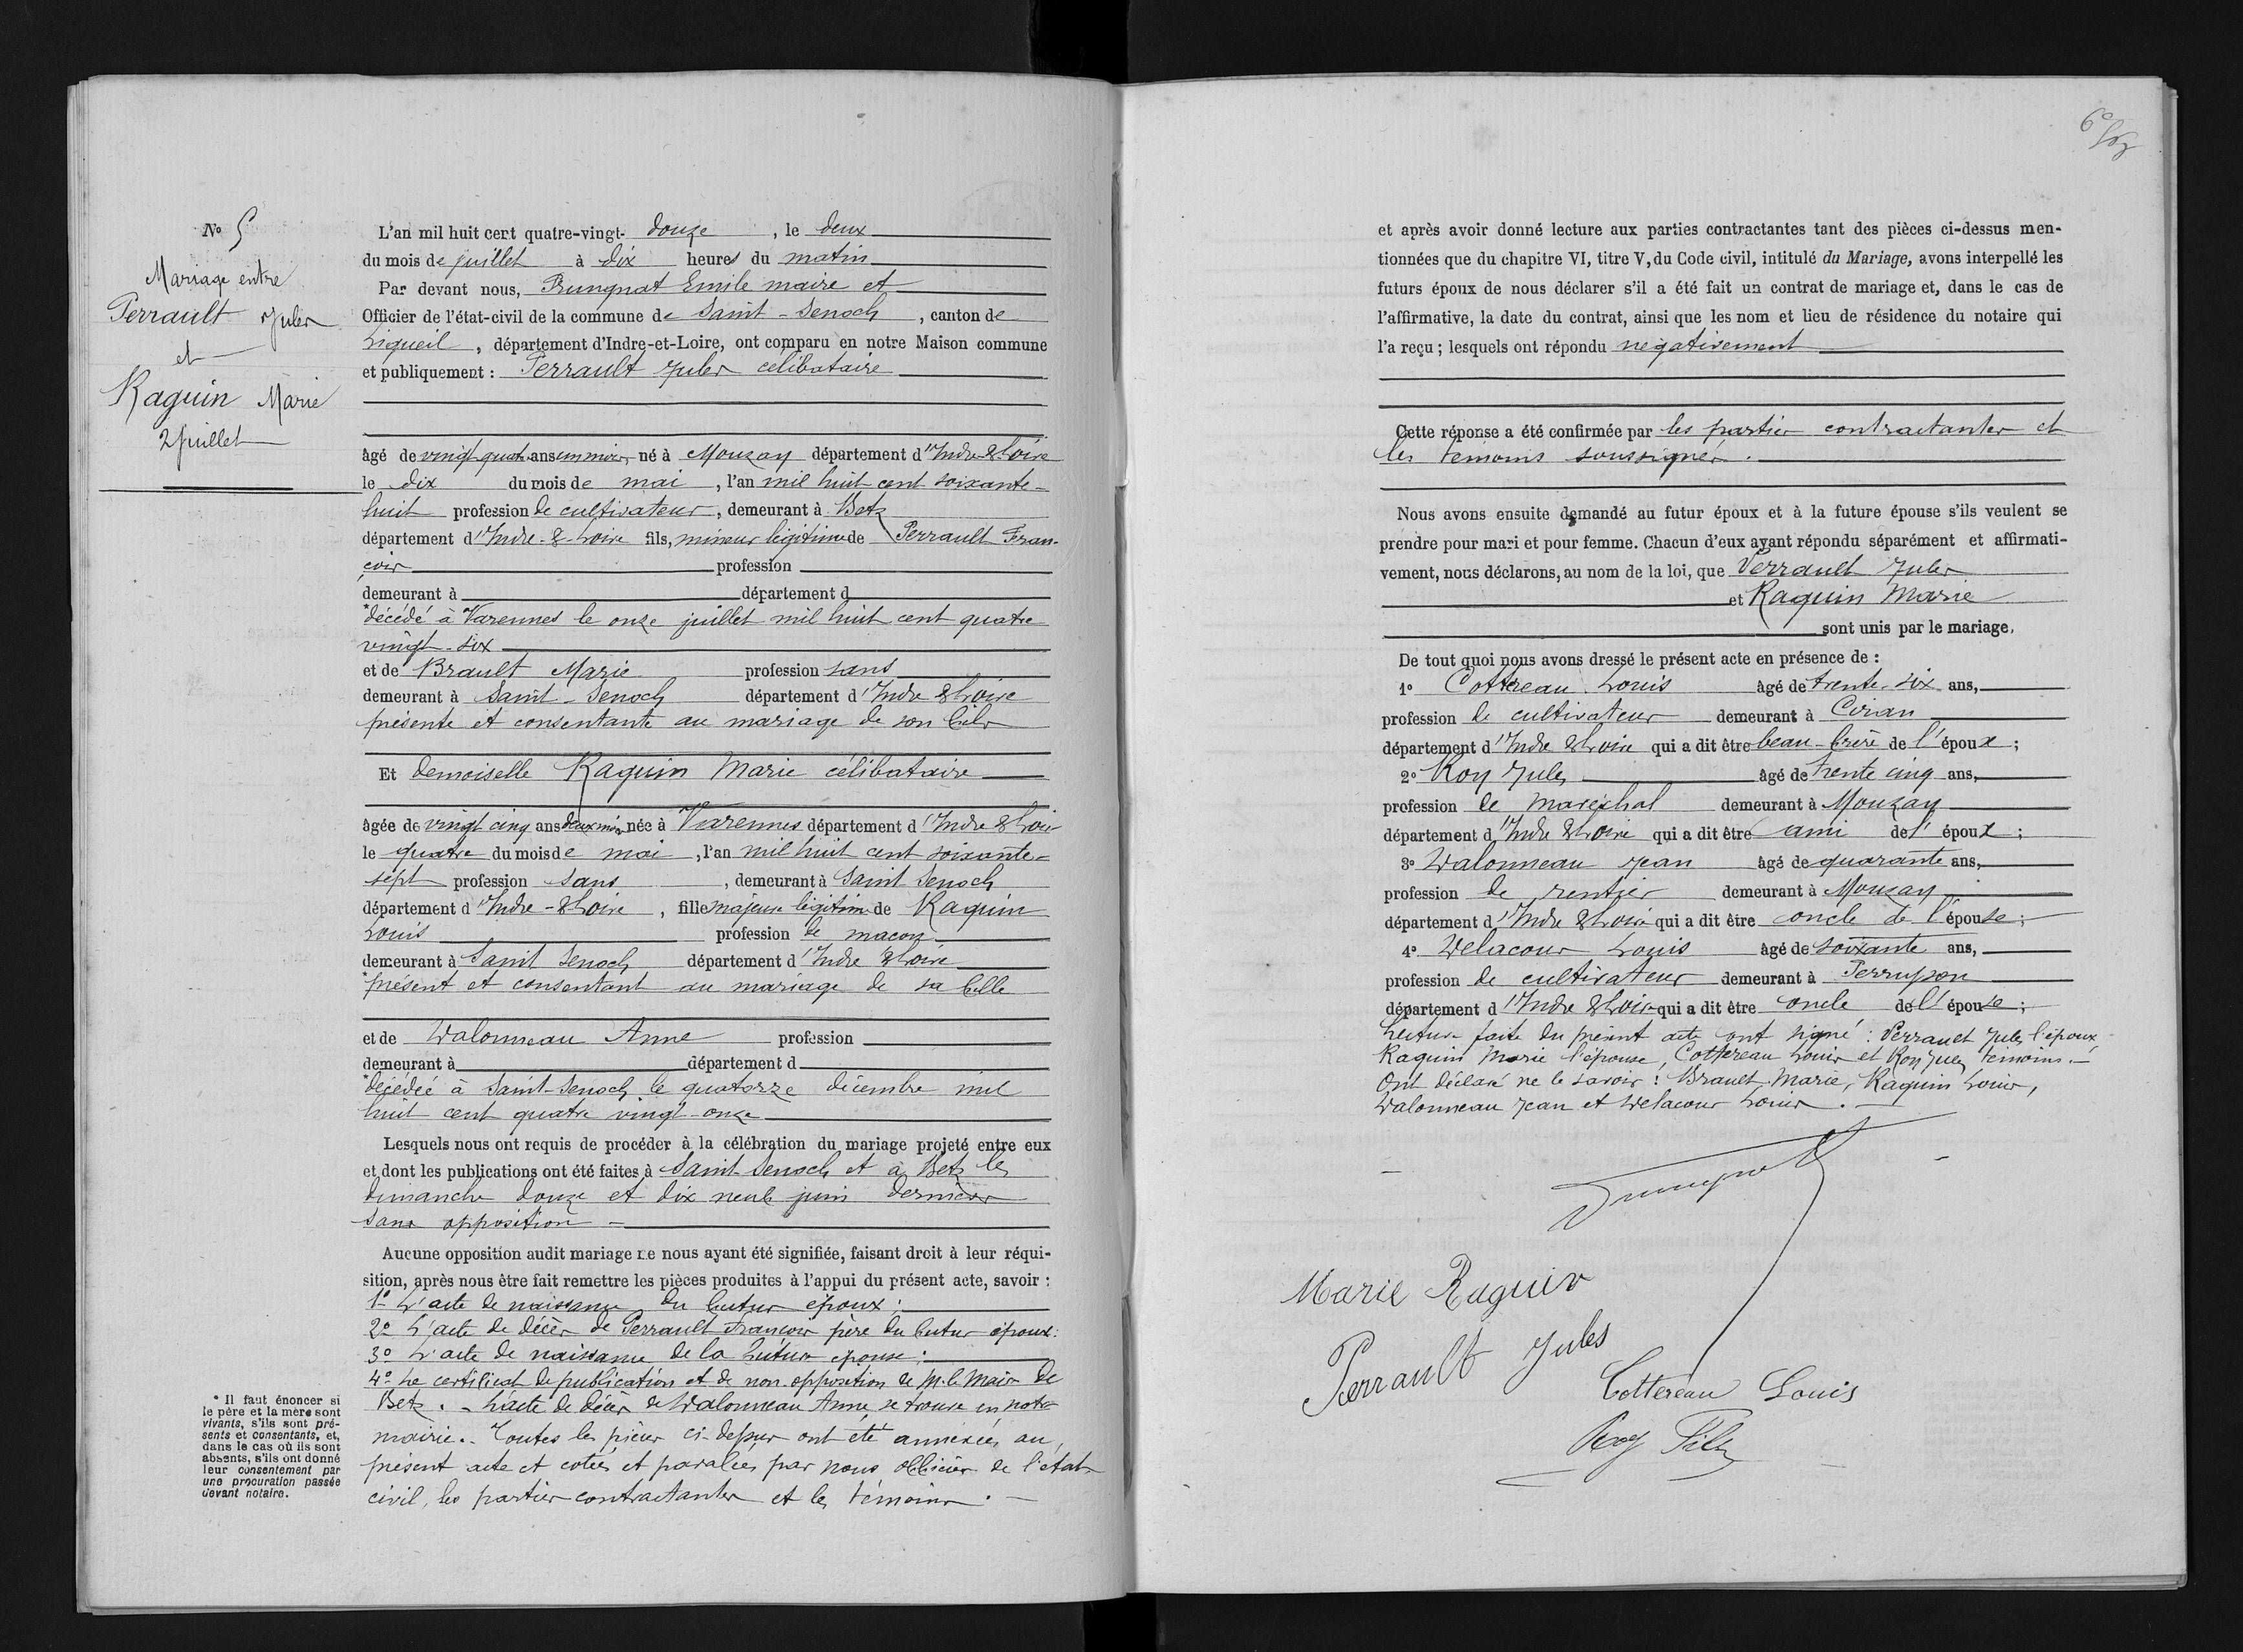 N° 5
Mariage entre
Perrault Jules
et
Raguin Marie
2 juillet
L'an mil huit cent quatre-vingt- douze , le deux
du mois de juillet à dix heures du matin
Par devant nous, Emile maire et
Officier de l'état-civil de la commune de Saint-Senoch , canton de
Ligueil , département d'Indre-et-Loire, ont comparu en notre Maison commune
et publiquement : Perrault Jules célibataire
âgé de vingt quatre ans un mois, né à Mouzay département d'Indre & Loire
le dix du mois de mai , l'an mil huit cent soixante-
huit profession de cultivateur , demeurant à Betz
département d'Indre-&-Loire fils, mineur légitime de Perrault Fran-
çois profession
demeurant à département d
*décédé à Varennes le onze juillet mil huit cent quatre
vingt-six
et de Brault Marie profession sans
demeurant à Saint-Senoch département d'Indre & Loire
présente et consentante au mariage de son fils
Et demoiselle Raguin Marie célibataire
âgée de vingt cinq ans deux mois née à Varennes département d'Indre & Loire
le quatre du mois de mai , l'an mil huit cent soixante-
sept profession sans , demeurant à Saint Senoch
département d'Indre-&-Loire , fille majeure légitime de Raguin
Louis profession de maçon
demeurant à Saint Senoch département d'Indre & Loire
*présent et consentant au mariage de sa fille
et de Walonneau Anne profession
demeurant à département d
*décédée à Saint-Senoch le quatorze décembre mil
huit cent quatre vingt-onze
Lesquels nous ont requis de procéder à la célébration du mariage projeté entre eux
et dont les publications ont été faites à Saint-Senoch et à Betz les
dimanches douze et dix neuf juin derniers
sans opposition
Aucune opposition audit mariage ne nous ayant été signifiée, faisant droit à leur réqui-
sition, après nous être fait remettre les pièces produites à l'appui du présent acte, savoir :
1° L'acte de naissance du futur époux ;
2° L'acte de décès de Perrault François père du futur époux :
3° L'acte de naissance de la future épouse ;
4° Le certificat de publication et de non opposition de M. le Maire de
Betz. - L'acte de décès de Walonneau Anne, se trouve en notre
mairie. - Toutes les pièces ci-dessus ont été annexées au
présent acte et cotées et parafées par nous officier de l'état
civil, les parties contractantes et les témoins. -
* Il faut énoncer si
le père et la mère sont
vivants, s'ils sont pré-
sents et consentants, et,
dans le cas où ils sont
absents, s'ils ont donné
leur consentement par
une procuration passée
devant notaire.
et après avoir donné lecture aux parties contractantes tant des pièces ci-dessus men-
tionnées que du chapitre VI, titre V, du Code civil, intitulé du Mariage, avons interpellé les
futurs époux de nous déclarer s'il a été fait un contrat de mariage et, dans le cas de
l'affirmative, la date du contrat, ainsi que les nom et lieu de résidence du notaire qui
l'a reçu ; lesquels ont répondu négativement
Cette réponse a été confirmée par les parties contractantes et
les témoins soussignés.
Nous avons ensuite demandé au futur époux et à la future épouse s'ils veulent se
prendre pour mari et pour femme. Chacun d'eux ayant répondu séparément et affirmati-
vement, nous déclarons, au nom de la loi, que Perrault Jules
et Raguin Marie
sont unis par le mariage.
De tout quoi nous avons dressé le présent acte en présence de :
1° Cottereau Louis âgé de trente-six ans,
profession de cultivateur demeurant à Ciran
département d'Indre & Loire qui a dit être beau-frère de l'époux ;
2° Roy Jules âgé de trente cinq ans,
profession de maréchal demeurant à Mouzay
département d'Indre & Loire qui a dit être ami de l'époux ;
3° Walonneau Jean âgé de quarante ans,
profession de rentier demeurant à Mouzay
département d'Indre & Loire qui a dit être oncle de l'épouse ;
4° Delacour Louis âgé de soixante ans,
profession de cultivateur demeurant à Perrusson
département d'Indre & Loire qui a dit être oncle de l'épouse ;
Lecture faite du présent acte ont signé : Perrault Jules l'époux
Raguin Marie l'épouse, Cottereau Louis et Roy Jules témoins. -
Ont déclaré ne le savoir : Brault Marie, Raguin Louis,
Walonneau Jean et Delacour Louis. -
Marie Raguin
Perrault Jules
Cottereau Louis
Roy